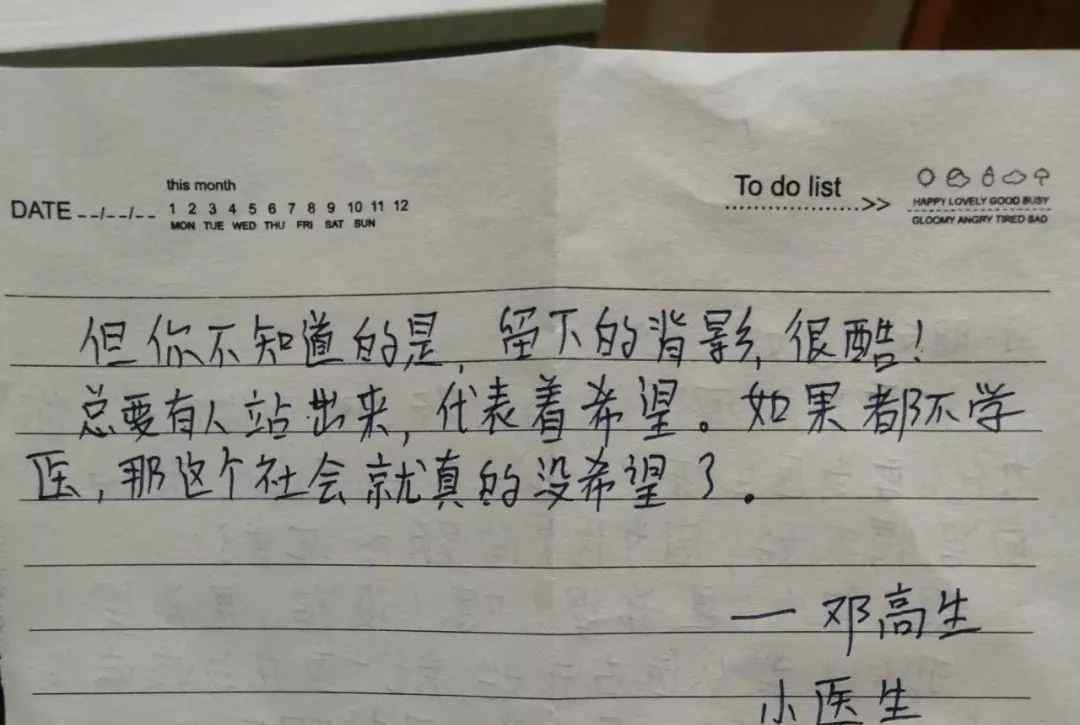 this month
DATE --/--/-- 1 2 3 4 5 6 7 8 9 10 11 12
MON TUE WED THU FRI SAT SUN
To do list >>
HAPPY LOVELY GOOD BUSY
GLOOMY ANGRY TIRED SAD
但你不知道的是,留下的背影,很酷!
总要有人站出来,代表着希望。如果都不学
医,那这个社会就真的没希望了。
— 邓高生
小医生